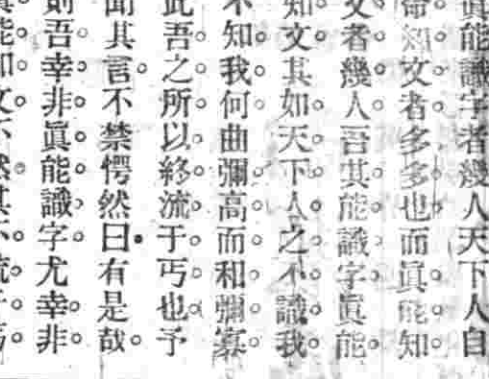 眞能識字者幾人天下人自
命知文者多多也而眞能知
文者幾人吾其能識字眞能
知文其如天下人之不識我
不知我何曲彌高而和彌寡
此吾之所以終流于丐也予
聞其言不禁愕然曰有是哉
則吾幸非眞能識字尤幸非
眞能知文不然其不流于丐